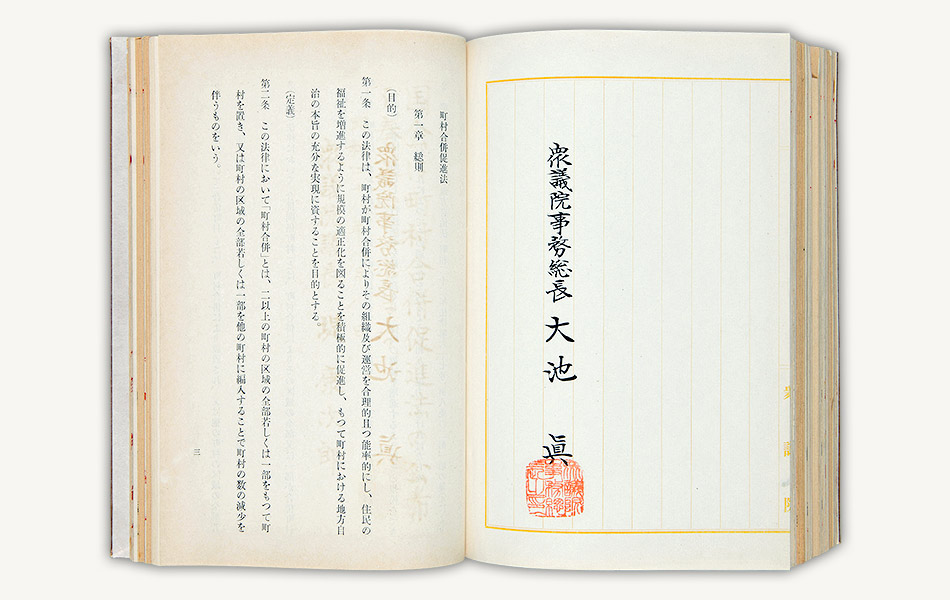 衆議院事務総長 大池 眞
町村合併促進法
第一章 総則
(目的)
第一条 この法律は、町村が町村合併によりその組織及び運営を合理的且つ能率的にし、住民の
福祉を増進するように規模の適正化を図ることを積極的に促進し、もつて町村における地方自
治の本旨の充分な実現に資することを目的とする。
(定義)
第二条 この法律において「町村合併」とは、二以上の町村の区域の全部若しくは一部をもつて町
村を置き、又は町村の区域の全部若しくは一部を他の町村に編入することで町村の数の減少を
伴うものをいう。
三